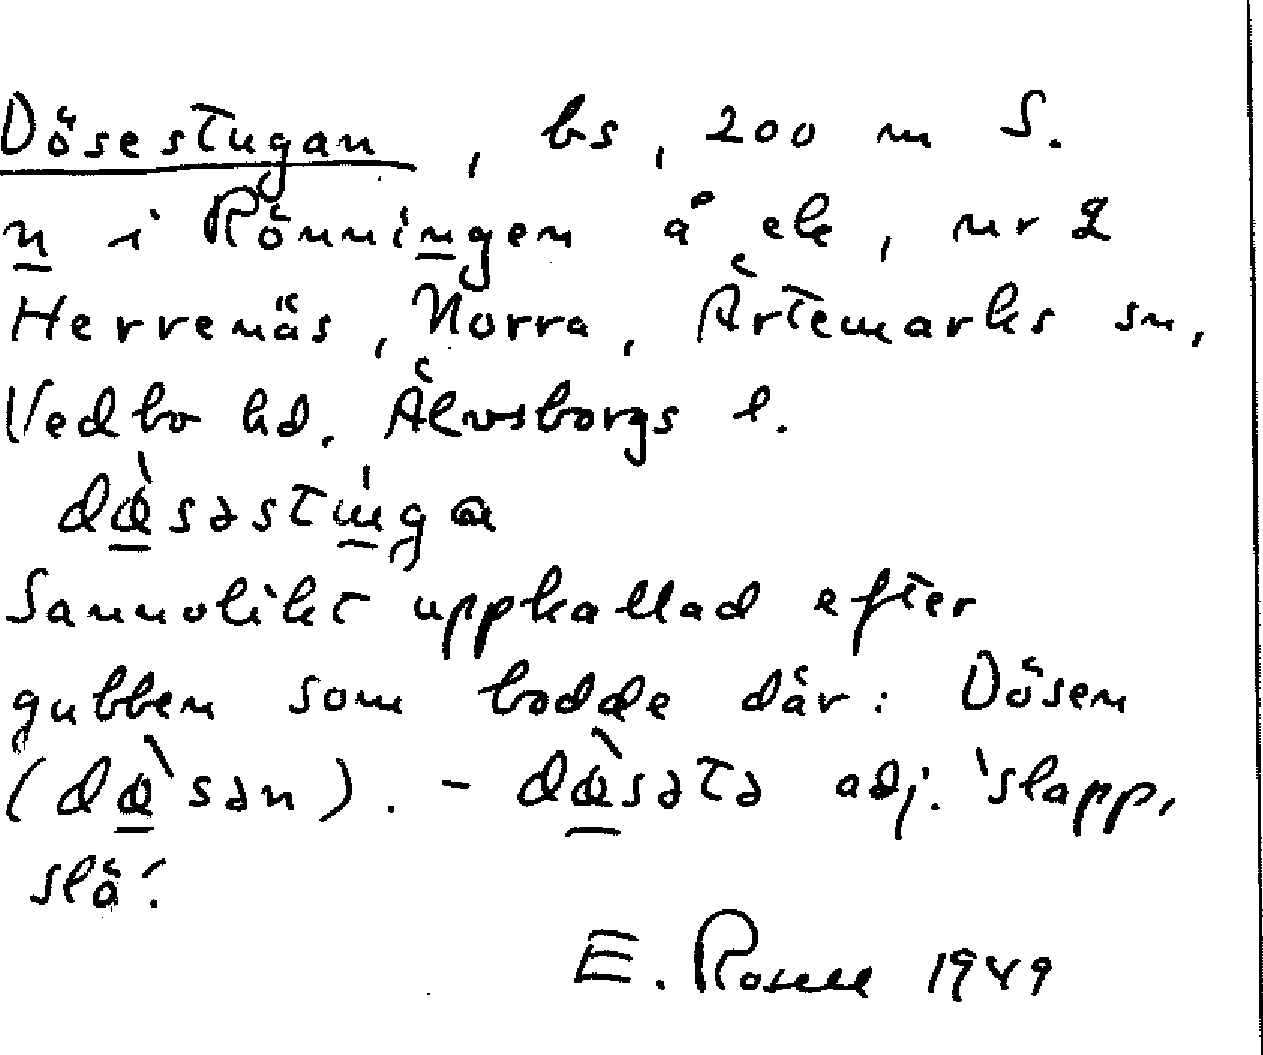 Dösestugan, bs, 200 m S.
n i Rönningen å ek, nr 2
Herrenäs, Norra, Ärtemarks sn,
Vedbo hd. Älvsborgs l.
dœ̀səstúga
Sannolikt uppkallad efter
gubben som bodde där: Dösen
(dœ̀sən). - dœ̀sətə adj. 'slapp,
slö'.
E. Rosell 1949